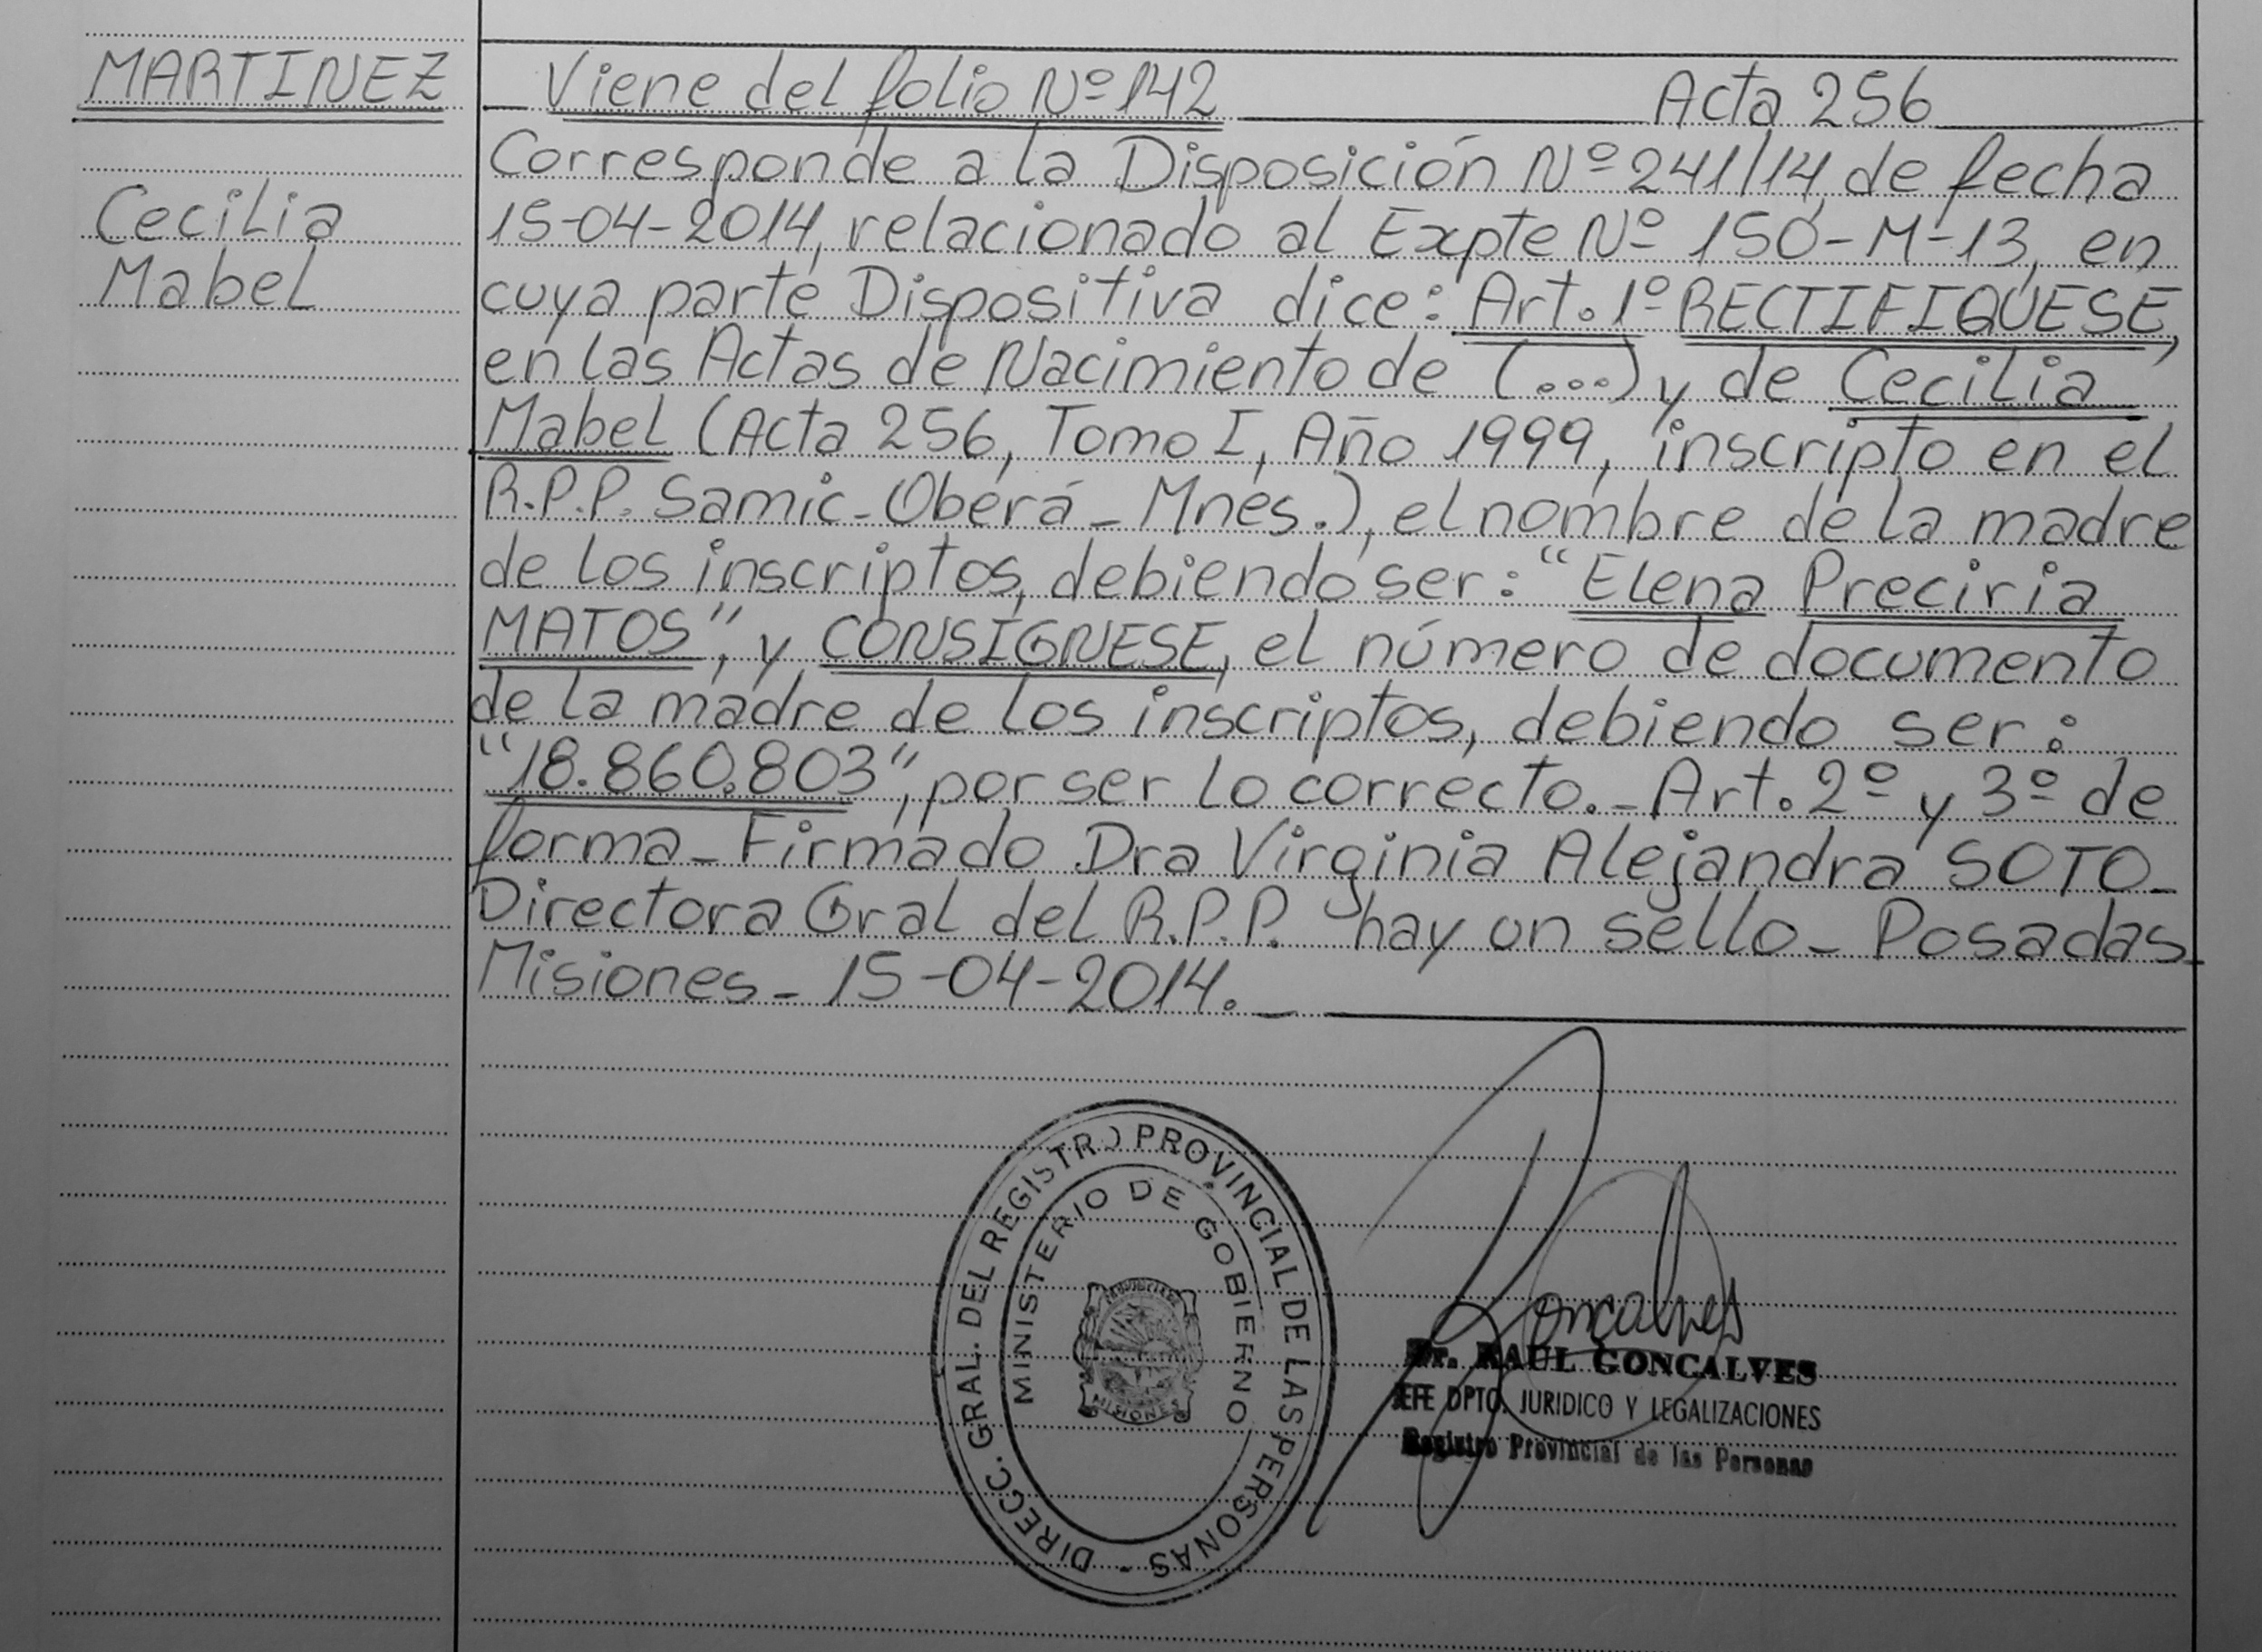 MARTINEZ
Cecilia
Mabel
Viene del folio Nº 142 Acta 256
Corresponde a la Disposición Nº 241/14, de fecha
15-04-2014, relacionado al Expte Nº 150-M-13, en
cuya parte Dispositiva dice: Art. 1º RECTIFIQUESE,
en las Actas de Nacimiento de (...) y de Cecilia
Mabel (Acta 256, Tomo I, Año 1999, inscripto en el
R.P.P. Samic-Oberá-Mnes.), el nombre de la madre
de los inscriptos, debiendo ser: "Elena Preciria
MATOS", y CONSÍGNESE, el número de documento
de la madre de los inscriptos, debiendo ser:
"18.860.803", por ser lo correcto._ Art. 2º y 3º de
forma_ Firmado Dra Virginia Alejandra SOTO_
Directora Gral del R.P.P. hay un sello_ Posadas_
Misiones_ 15-04-2014._
DIRECC. GRAL. DEL REGISTRO PROVINCIAL DE LAS PERSONAS -
MINISTERIO DE GOBIERNO
MISIONES
Goncalves
Dr. RAUL GONCALVES
JEFE DPTO. JURIDICO Y LEGALIZACIONES
Registro Provincial de las Personas